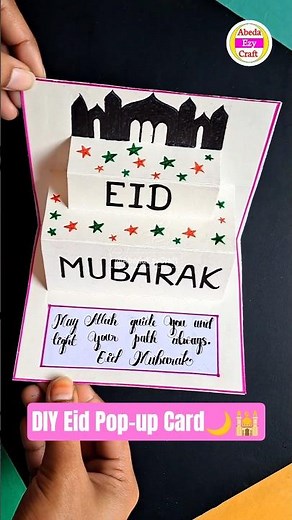 Abeda
Ezy
Craft
EID
MUBARAK
May Allah guide you and
light your path always.
Eid Mubarak
DIY Eid Pop-up Card🌙🕌